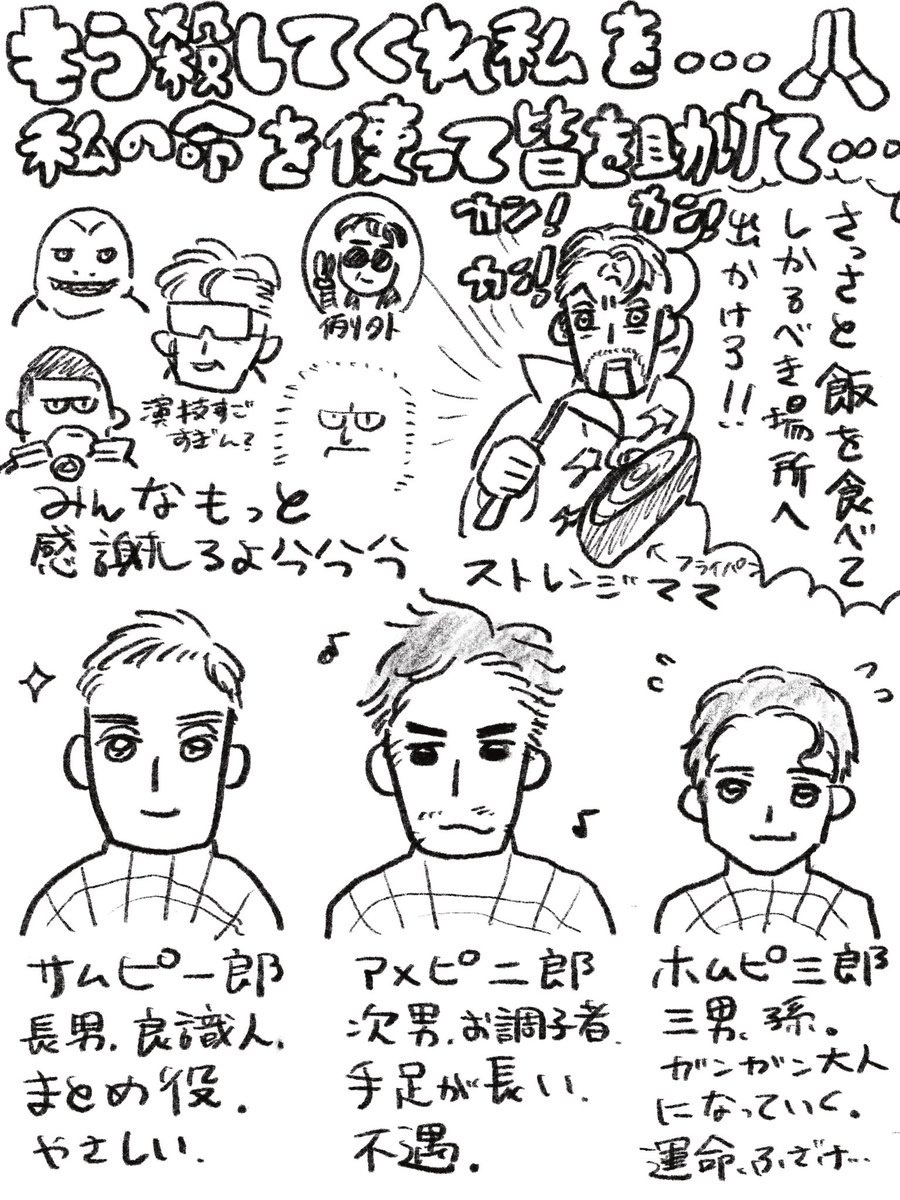 もう殺してくれ私を...
私の命を使って皆を助けて...
カン!
カン!
カン!
さっさと飯を食べて
しかるべき場所へ
出かけろ!!
例外
演技すご
すぎん?
みんなもっと
感謝しろよ
ストレンジママ
フライパン
サムピ一郎
長男.良識人.
まとめ役.
やさしい.
アメピ二郎
次男.お調子者.
手足が長い.
不遇.
ホムピ三郎
三男、孫。
ガンガン大人
になっていく。
運命、ふざけ...